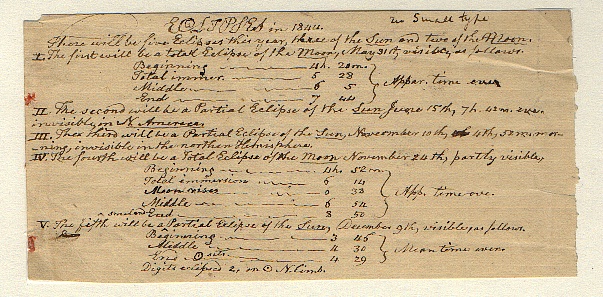 ECLIPSES in 1844. no Small type
There will be five Eclipses this year, three of the Sun and two of the Moon.
I. The first will be a total Eclipse of the Moon, May 31st, visible, as follows.
Beginning 4h. 20m.
Total immer. 5 28
Middle 6 5 Appar. time eve
End 7 44
II. The second will be a Partial Eclipse of the Sun June 15th, 7h. 42m. eve.
invisible, in N. America.
III. The third will be a Partial Eclipse of the Sun, November 10th, 4h, 52m. mor-
ning, invisible in the northern Hemisphere.
IV. The fourth will be a Total Eclipse of the Moon November 24th, partly visible,
Beginning 4h. 52m
Total immersion 6 14
Moon rises 0 33 App. time eve.
Middle 6 54
End 8 50
V. The fifth will be a Partial Eclipse of the Sun, December 9th, visible, as follows.
Beginning 3 45
Middle 4 30 Mean time even.
sets. 4 29
Digits eclipsed 2, on ☉ N. limb.